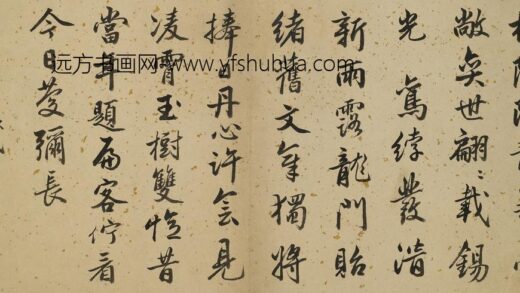 敞奕世翩翩載錫
光 鸞綍發清
新雨露龍門貽
緒舊文章獨將
捧日丹心許會見
凌霄玉樹雙憶昔
當年題扁客佇看
今日慶彌長
远方书画网www.yfshuhua.com